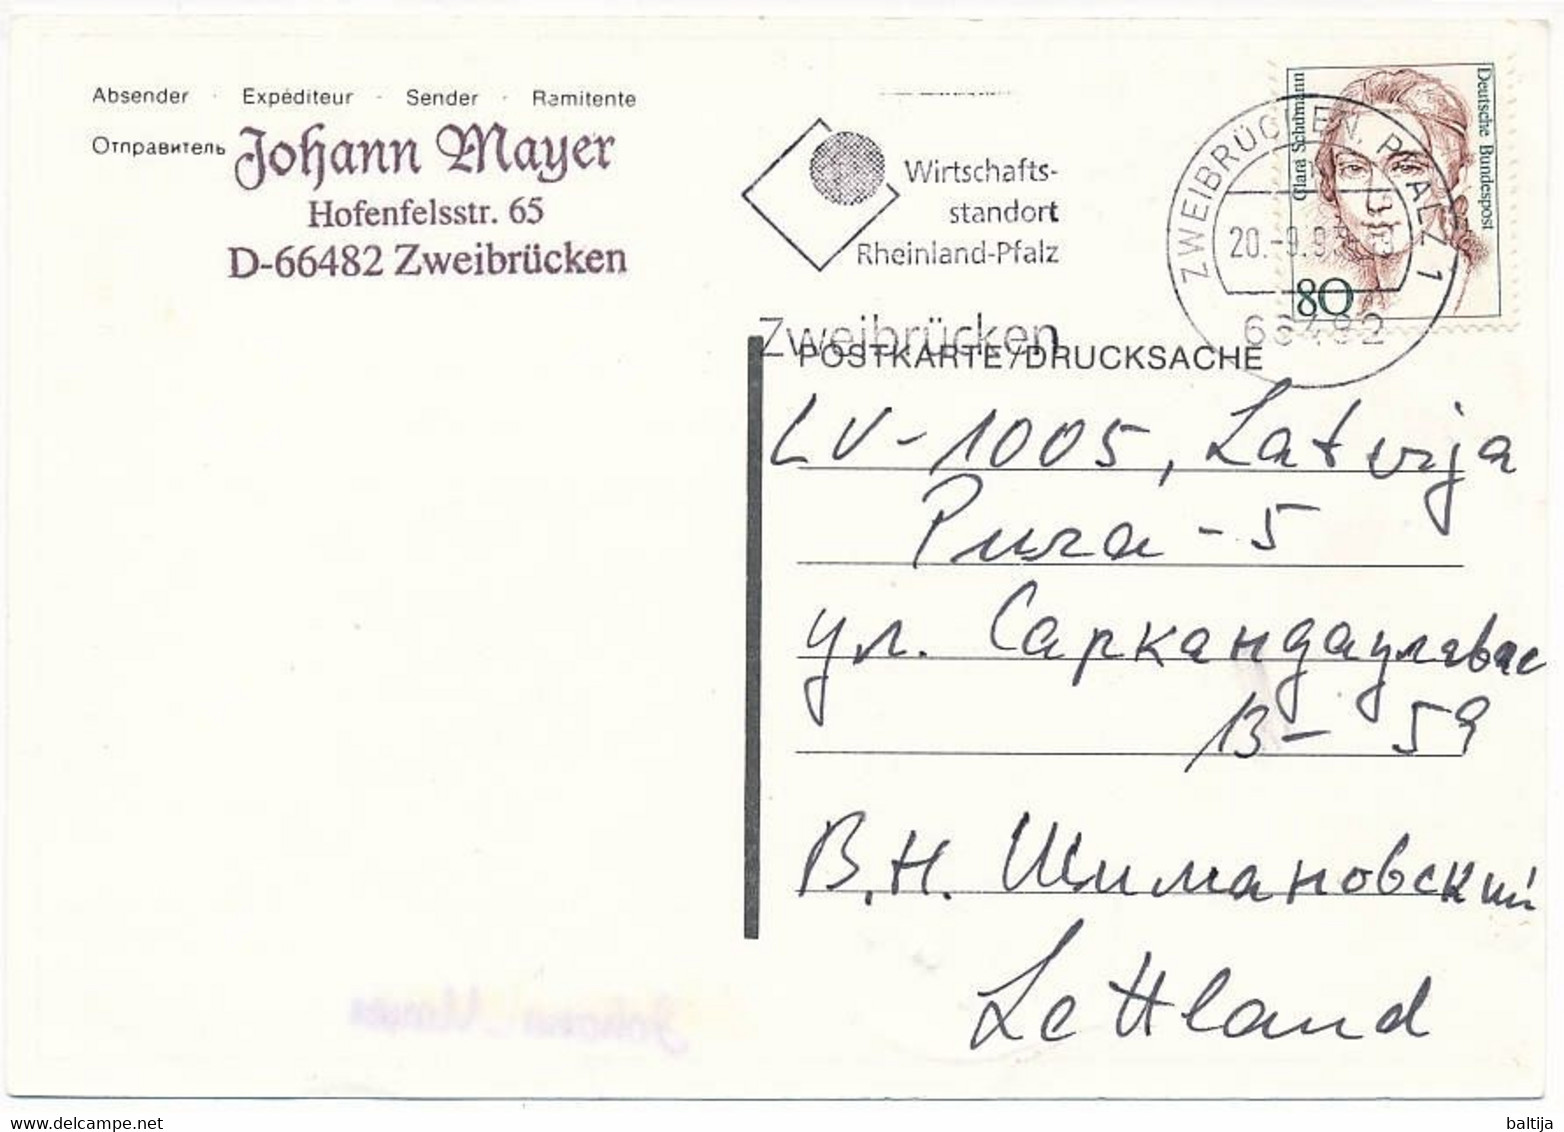 Absender · Expéditeur · Sender · Ramitente
Отправитель
Johann Mayer
Hofenfelsstr. 65
D-66482 Zweibrücken
Wirtschafts-
standort
Rheinland-Pfalz
Zweibrücken
ZWEIBRÜCKEN, PFALZ 1
20.-9.9
66482
Clara Schumann
Deutsche Bundespost
80
POSTKARTE/DRUCKSACHE
LV-1005, Latvija
Рига-5
ул. Саркандаугавас
13- 59
В.Н. Шимановский
Lettland
baltija